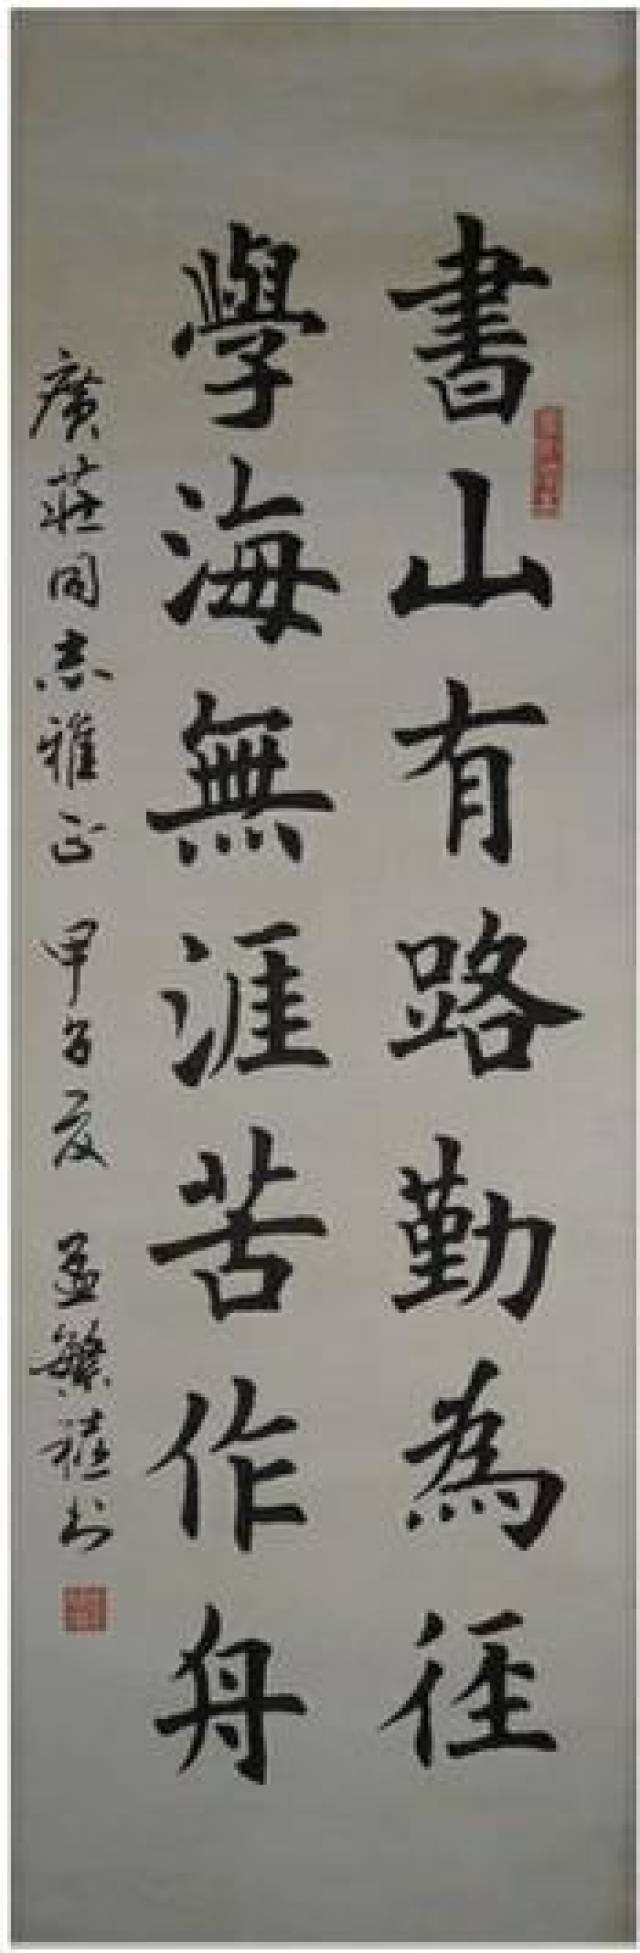 書山有路勤為徑
學海無涯苦作舟
廣莊同志雅正 甲子夏 孟繁禧书